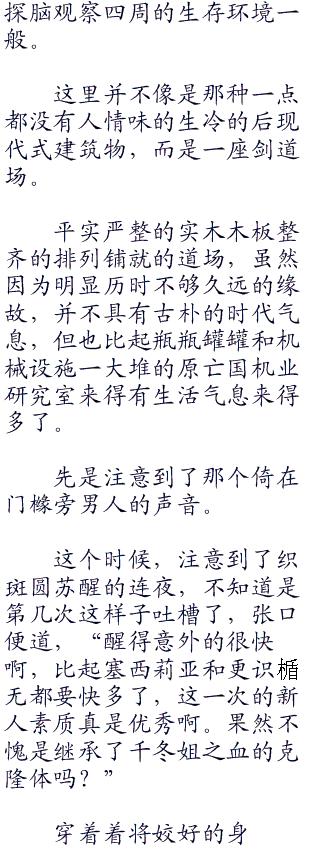 探脑观察四周的生存环境一
般。
这里并不像是那种一点
都没有人情味的生冷的后现
代式建筑物，而是一座剑道
场。
平实严整的实木木板整
齐的排列铺就的道场，虽然
因为明显历时不够久远的缘
故，并不具有古朴的时代气
息，但也比起瓶瓶罐罐和机
械设施一大堆的原亡国机业
研究室来得有生活气息来得
多了。
先是注意到了那个倚在
门橼旁男人的声音。
这个时候，注意到了织
斑圆苏醒的连夜，不知道是
第几次这样子吐槽了，张口
便道，“醒得意外的很快
啊，比起塞西莉亚和更识楯
无都要快多了，这一次的新
人素质真是优秀啊。果然不
愧是继承了千冬姐之血的克
隆体吗？”
穿着着将姣好的身